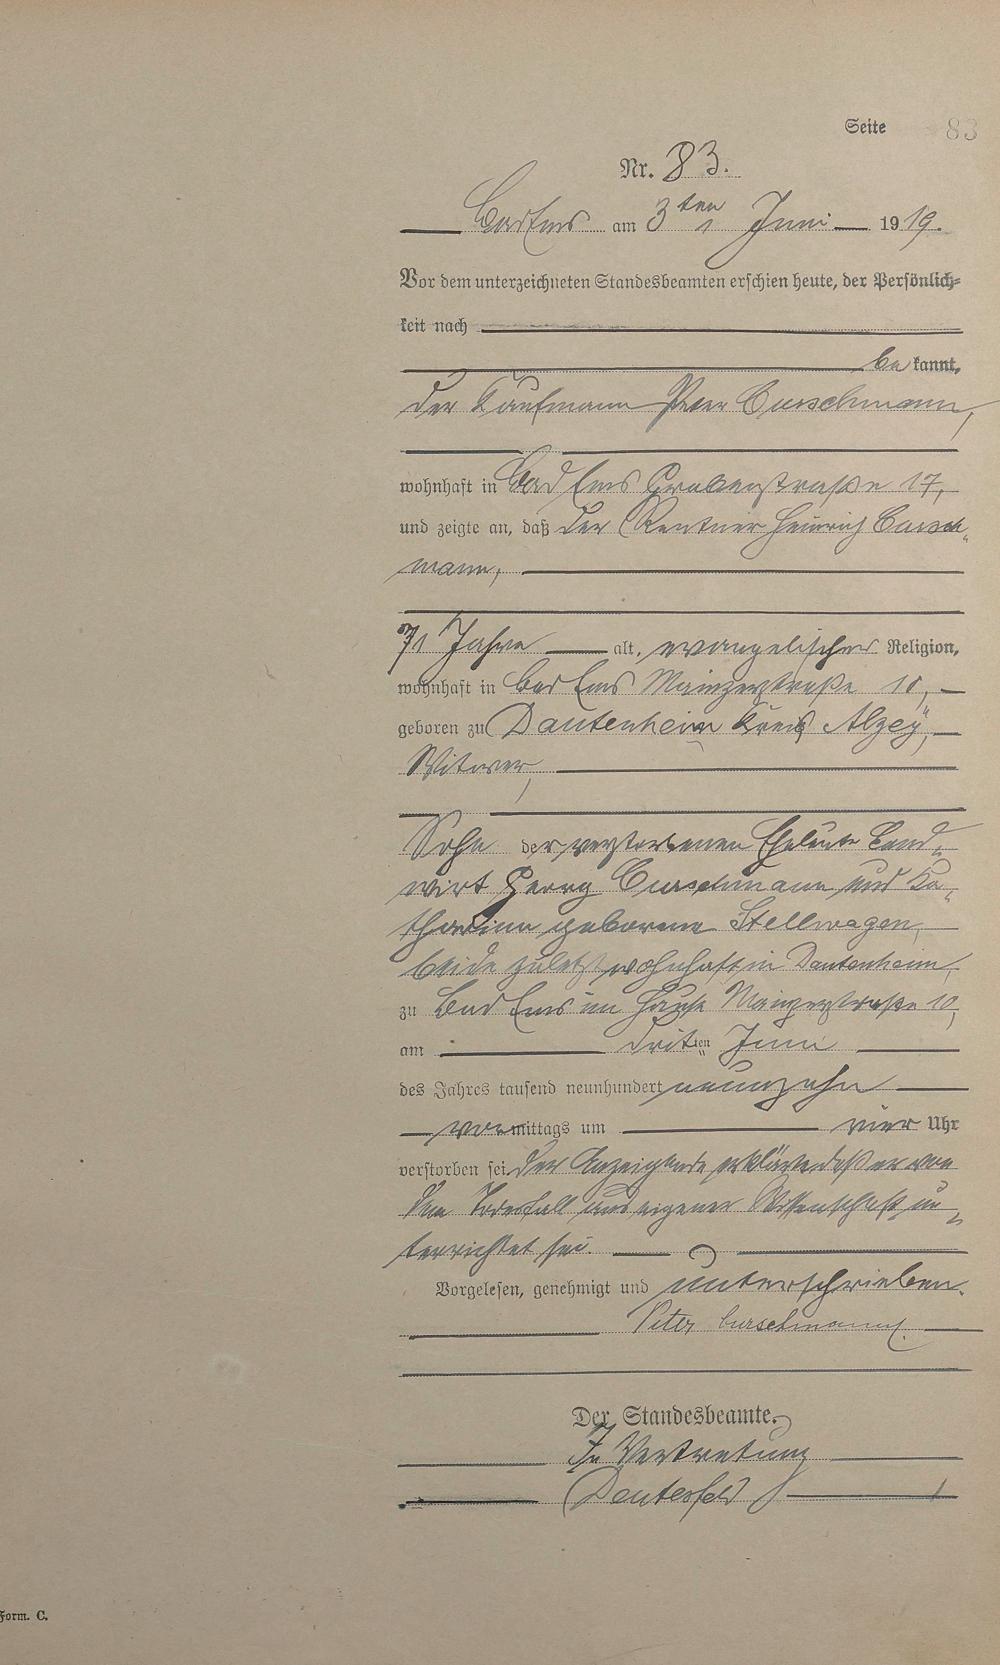 Seite 83
Nr. 83.
Bad Ems am 3ten Juni 1919.
Vor dem unterzeichneten Standesbeamten erschien heute, der Persönlich=
keit nach
be kannt,
der Kaufmann Peter Curschmann,
wohnhaft in Bad Ems Grabenstraße 17,
und zeigte an, daß der Rentner Heinrich Cursch„
mann,
71 Jahre alt, evangelischer Religion,
wohnhaft in Bad Ems Mainzerstraße 10,
geboren zu Dautenheim Kreis Alzey,
Witwer,
Sohn der verstorbenen Eheleute Land„
wirt Georg Curschmann und Ka„
tharina geborene Stellwagen,
beide zuletzt wohnhaft in Dautenheim,
zu Bad Ems im Hause Mainzerstraße 10,
am dritten Juni
des Jahres tausend neunhundert neunzehn
vormittags um vier Uhr
verstorben sei. Der Anzeigende erklärte daß er von
dem Todesfall aus eigener Wissenschaft un„
terrichtet sei.
Vorgelesen, genehmigt und unterschrieben.
Peter Curschmann.
Der Standesbeamte.
In Vertretung
Form. C.